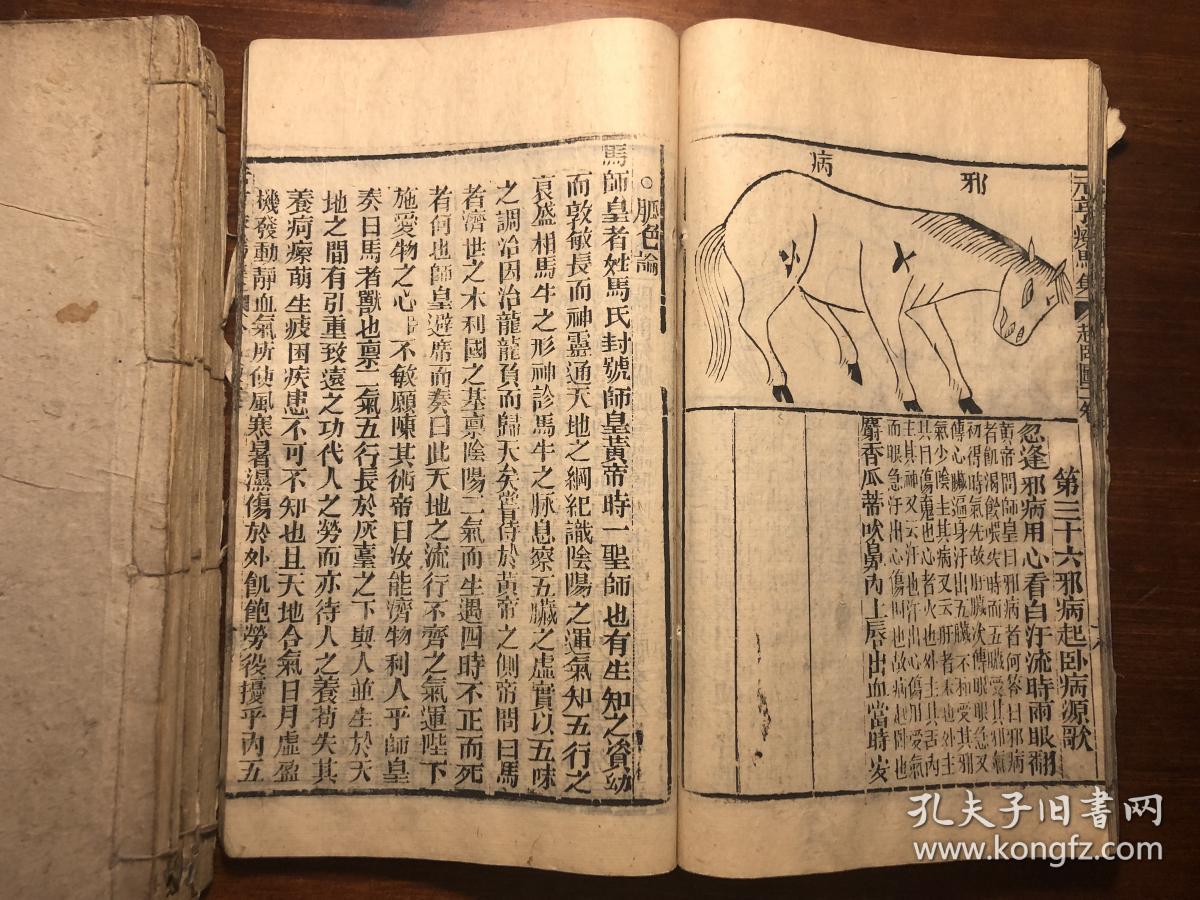 元亨療馬集
起臥圖一卷
邪
病
第三十六邪病起卧病源歌
忽逢邪病用心看白汗流時雨眼翻
黃帝問師皇曰邪病者何答曰邪病
者飢渴餵喂失時而五臟受其邪氣
初得時氣先故肝臟次傳眼急又
傳心臟遍身汗出五臟不和受其邪
氣少陰主其病又云肝者木也外主
其目傷魂也心者火也外主其舌內
主其神又云汗也汗出心傷用受氣
而眼急汗出心傷則出也故病起卧也
麝香瓜蒂吹鼻內上唇出血當時安
○脈色論
馬師皇者姓馬氏封號師皇黃帝時一聖師也有生知之資幼
而敦敏長而神靈通天地之綱紀識陰陽之運氣知五行之
衰盛相馬牛之形神診馬牛之脉息察五臟之虛實以五味
之調治因治龍龍負而歸天矣嘗侍於黃帝之側帝問曰馬
者何也師皇避席而奏曰此天地之流行不齊之氣運陛下
者濟世之本利國之基稟陰陽二氣而生遇四時不正而死
施愛物之心 不敏願陳其術帝曰汝能濟物利人乎師皇
奏曰馬者獸也稟二氣五行長於灰臺之下與人並生於天
地之間有引重致遠之功代人之勞而亦待人之養苟失其
養疴瘵萌生疲困疾患不可不知也且天地合氣日月虛盈
機發動靜血氣所使風寒暑濕傷於外飢飽勞役擾乎內五
孔夫子旧书网
www.kongfz.com